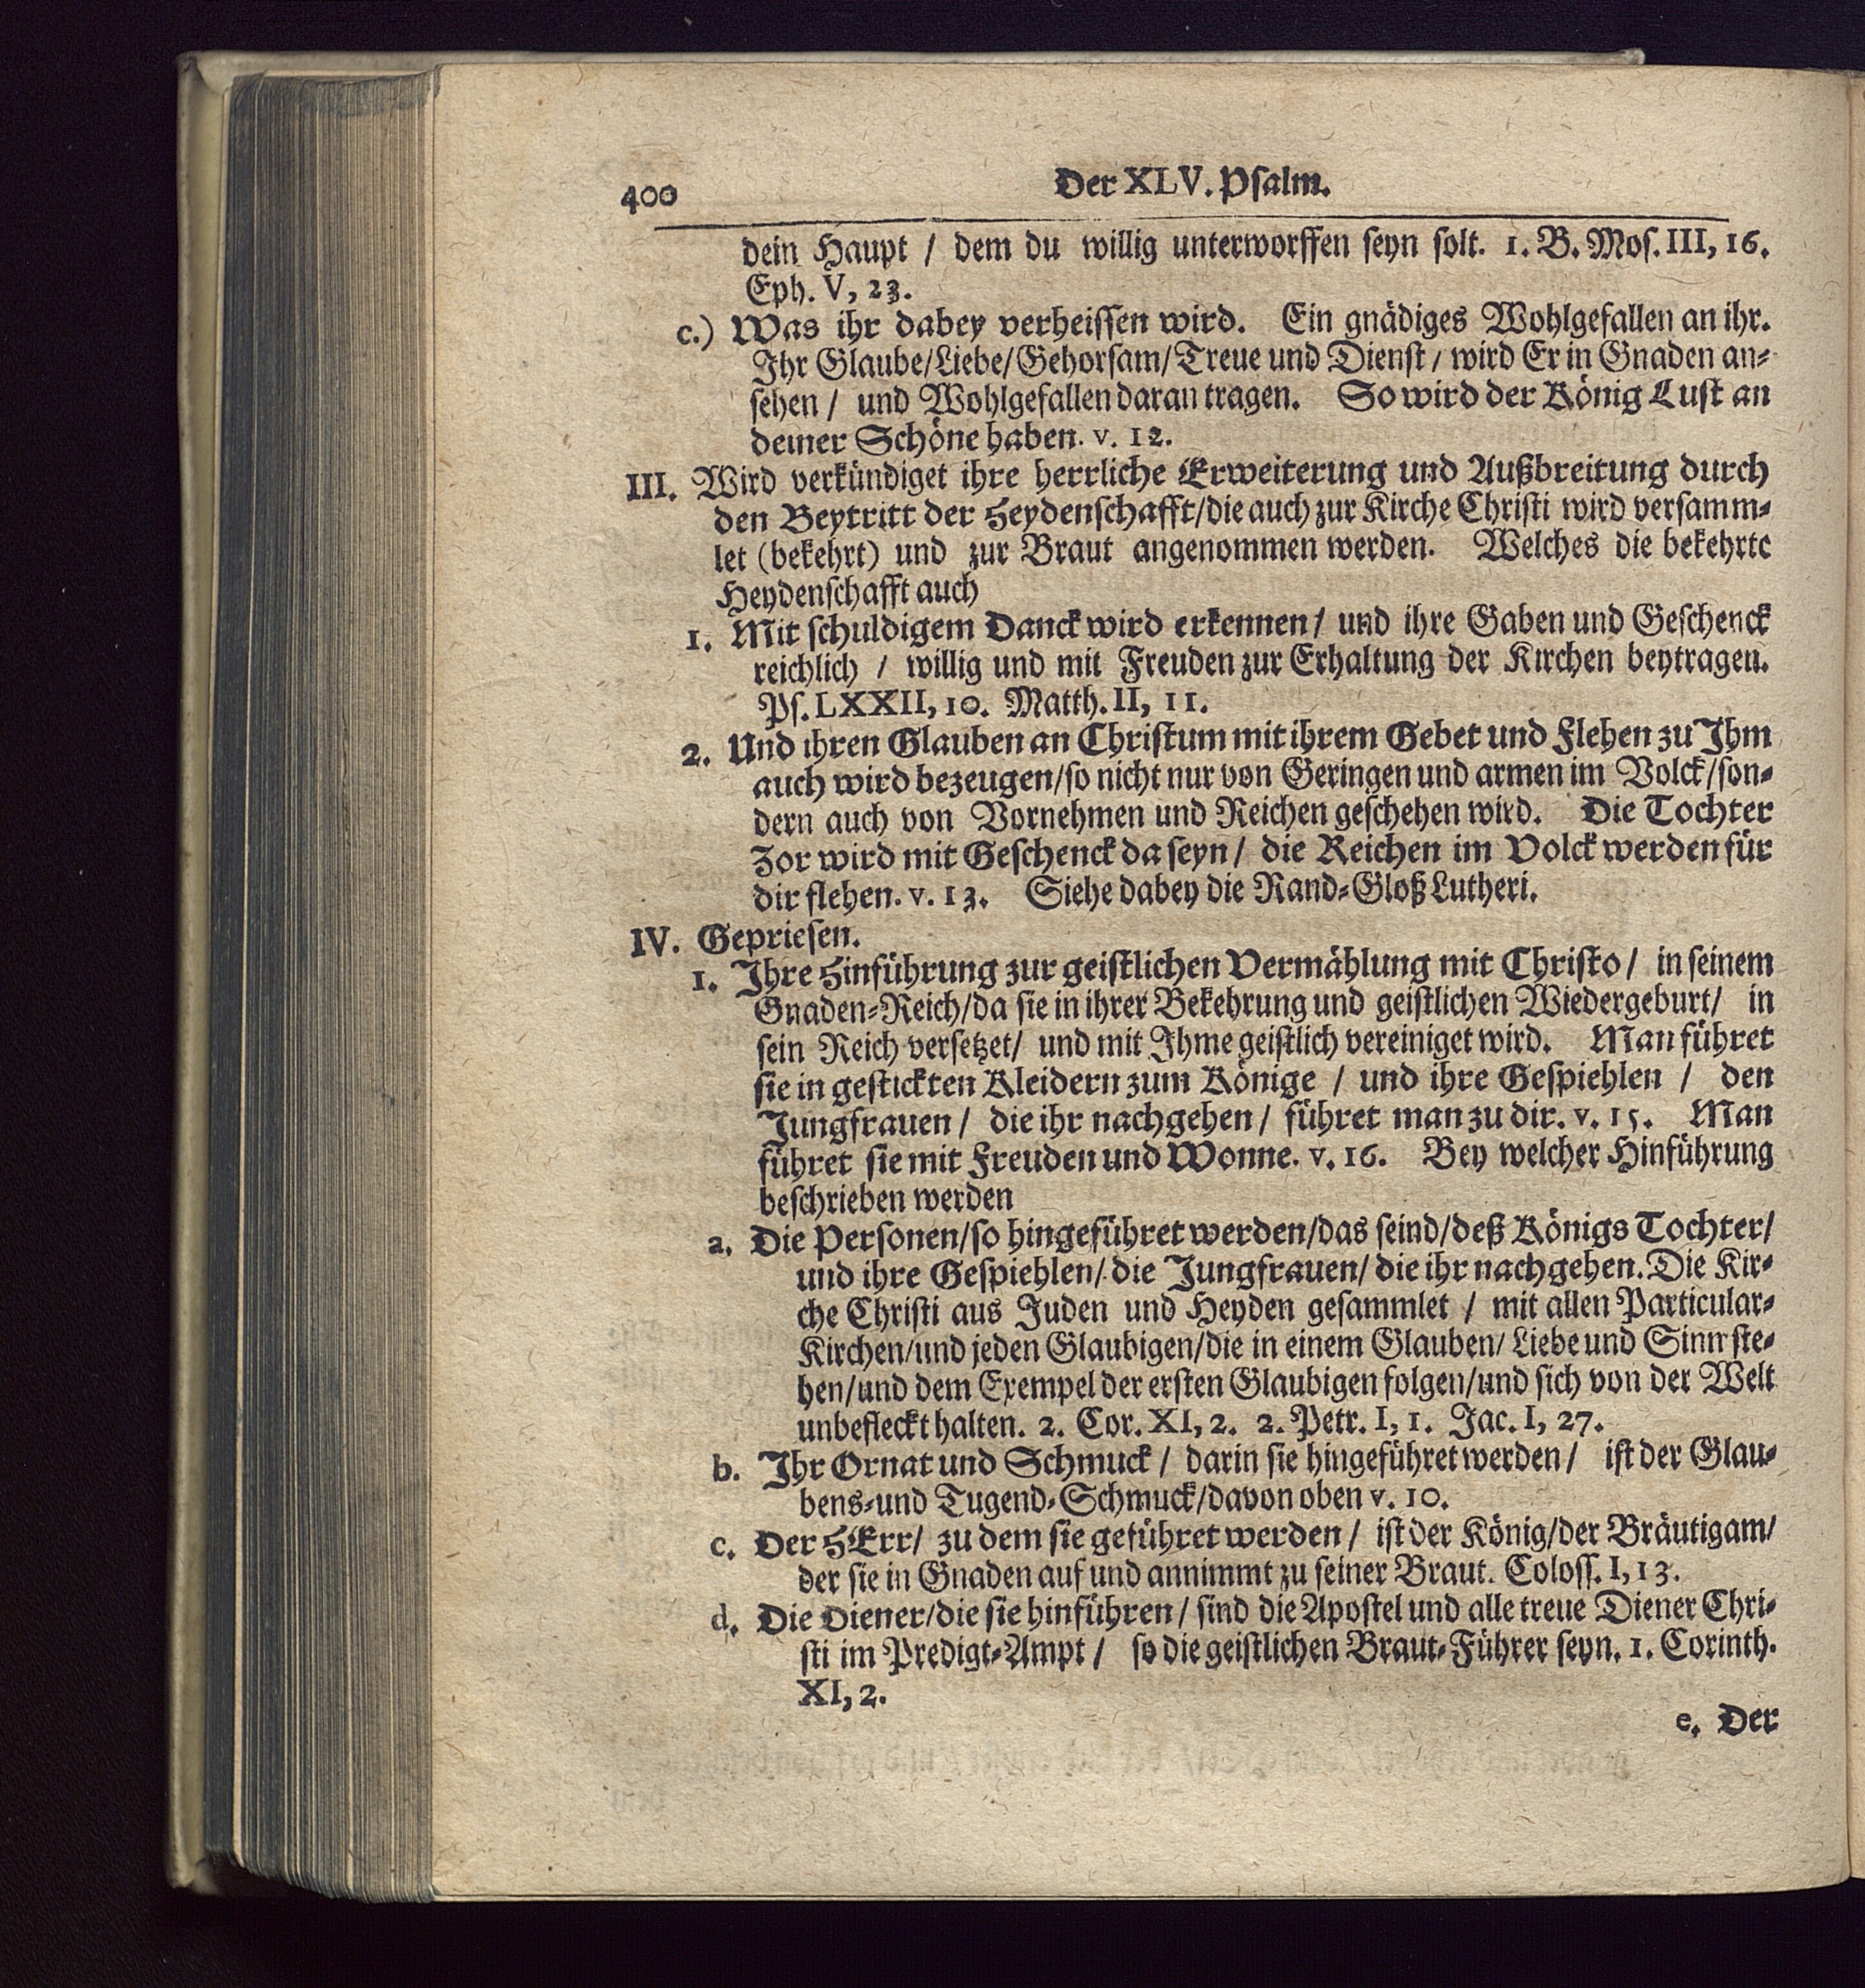 400
Der XLV. Psalm.
dein Haupt / dem du willig unterworffen seyn solt. 1. B. Mos. III, 16.
Eph. V, 23.
c.) Was ihr dabey verheissen wird. Ein gnädiges Wohlgefallen an ihr.
Ihr Glaube/Liebe/Gehorsam/Treue und Dienst / wird Er in Gnaden an-
sehen / und Wohlgefallen daran tragen. So wird der König Lust an
deiner Schöne haben. v. 12.
III. Wird verkündiget ihre herrliche Erweiterung und Außbreitung durch
den Beytritt der Heydenschafft/die auch zur Kirche Christi wird versamm-
let (bekehrt) und zur Braut angenommen werden. Welches die bekehrte
Heydenschafft auch
1. Mit schuldigem Danck wird erkennen / und ihre Gaben und Geschenck
reichlich / willig und mit Freuden zur Erhaltung der Kirchen beytragen.
Ps. LXXII, 10. Matth. II, 11.
2. Und ihren Glauben an Christum mit ihrem Gebet und Flehen zu Ihm
auch wird bezeugen/so nicht nur von Geringen und armen im Volck/son-
dern auch von Vornehmen und Reichen geschehen wird. Die Tochter
Zor wird mit Geschenck da seyn / die Reichen im Volck werden für
dir flehen. v. 13. Siehe dabey die Rand-Gloß Lutheri.
IV. Gepriesen.
1. Ihre Hinführung zur geistlichen Vermählung mit Christo / in seinem
Gnaden-Reich/da sie in ihrer Bekehrung und geistlichen Wiedergeburt/ in
sein Reich versetzet/ und mit Ihme geistlich vereiniget wird. Man führet
sie in gestickten Kleidern zum Könige / und ihre Gespiehlen / den
Jungfrauen / die ihr nachgehen / führet man zu dir. v. 15. Man
führet sie mit Freuden und Wonne. v. 16. Bey welcher Hinführung
beschrieben werden
a. Die Personen/so hingeführet werden/das seind/deß Königs Tochter/
und ihre Gespiehlen/ die Jungfrauen/ die ihr nachgehen. Die Kir-
che Christi aus Juden und Heyden gesammlet / mit allen Particular-
Kirchen/und jeden Glaubigen/die in einem Glauben/ Liebe und Sinn ste-
hen/und dem Exempel der ersten Glaubigen folgen/und sich von der Welt
unbefleckt halten. 2. Cor. XI, 2. 2. Petr. I, 1. Jac. I, 27.
b. Ihr Ornat und Schmuck / darin sie hingeführet werden / ist der Glau-
bens-und Tugend-Schmuck/davon oben v. 10.
c. Der HErr/ zu dem sie geführet werden / ist der König/der Bräutigam/
der sie in Gnaden auf und annimmt zu seiner Braut. Coloss. I, 13.
d. Die Diener/die sie hinführen / sind die Apostel und alle treue Diener Chri-
sti im Predigt-Ampt / so die geistlichen Braut-Führer seyn. 1. Corinth.
XI, 2.
e. Der